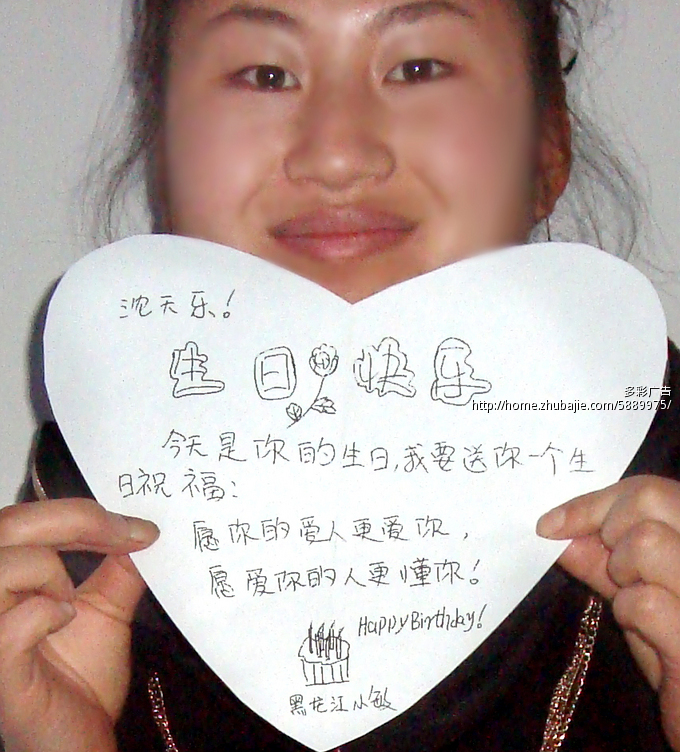 沈天乐!
生日快乐
今天是你的生日,我要送你一个生
日祝福:
愿你的爱人更爱你,
愿爱你的人更懂你!
Happy Birthday!
黑龙江小敏
多彩广告
http://home.zhubajie.com/5889975/